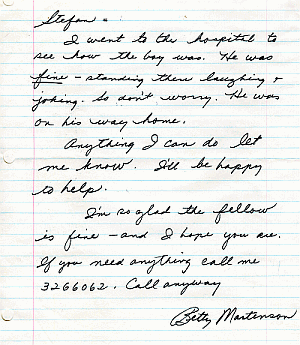 Stefan =
I went to the hospital to
see how the boy was. He was
fine - standing there laughing +
joking. So don't worry. He was
on his way home.
Anything I can do let
me know. I'll be happy
to help.
I'm so glad the fellow
is fine - and I hope you are.
If you need anything call me
3266062. Call anyway
Betty Martenson